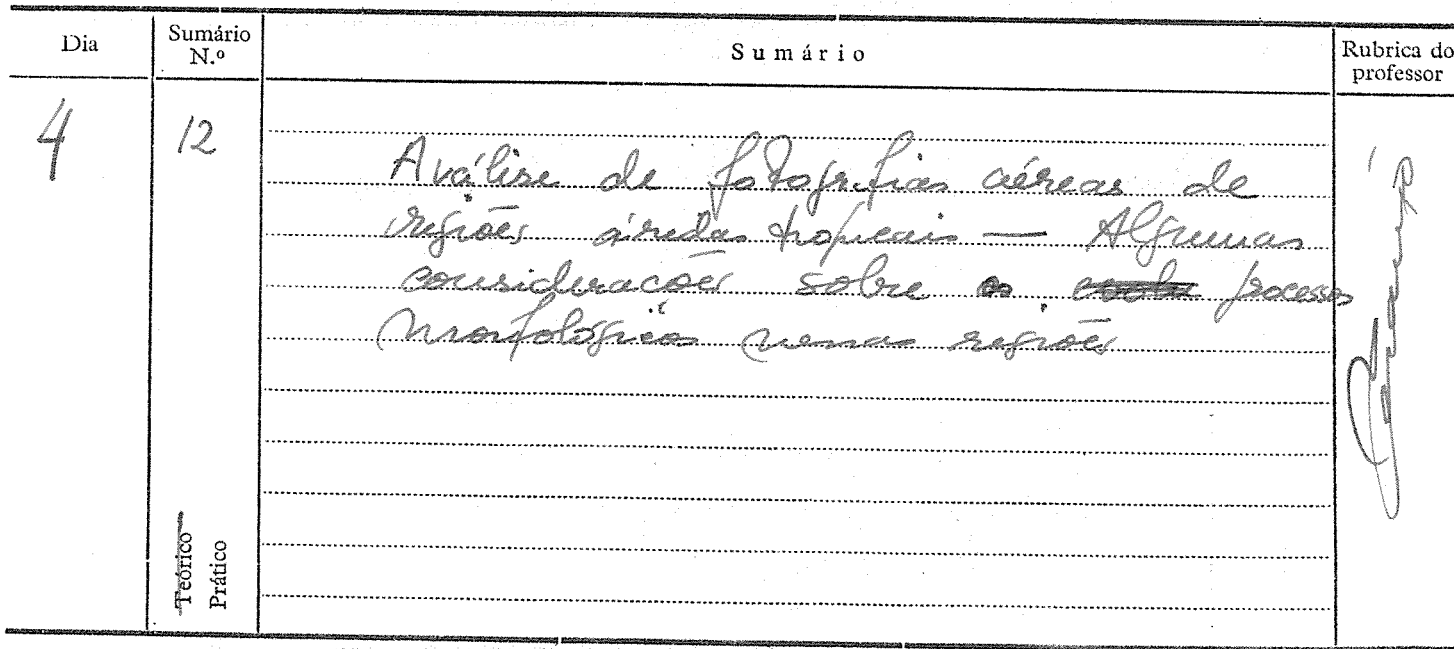 Dia
Sumário N.º
Sumário
Rubrica do professor
4
12
Análise de fotografias aéreas de
regiões áridas tropicais — Algumas
considerações sobre os processos
morfológicos nessas regiões
Teórico
Prático